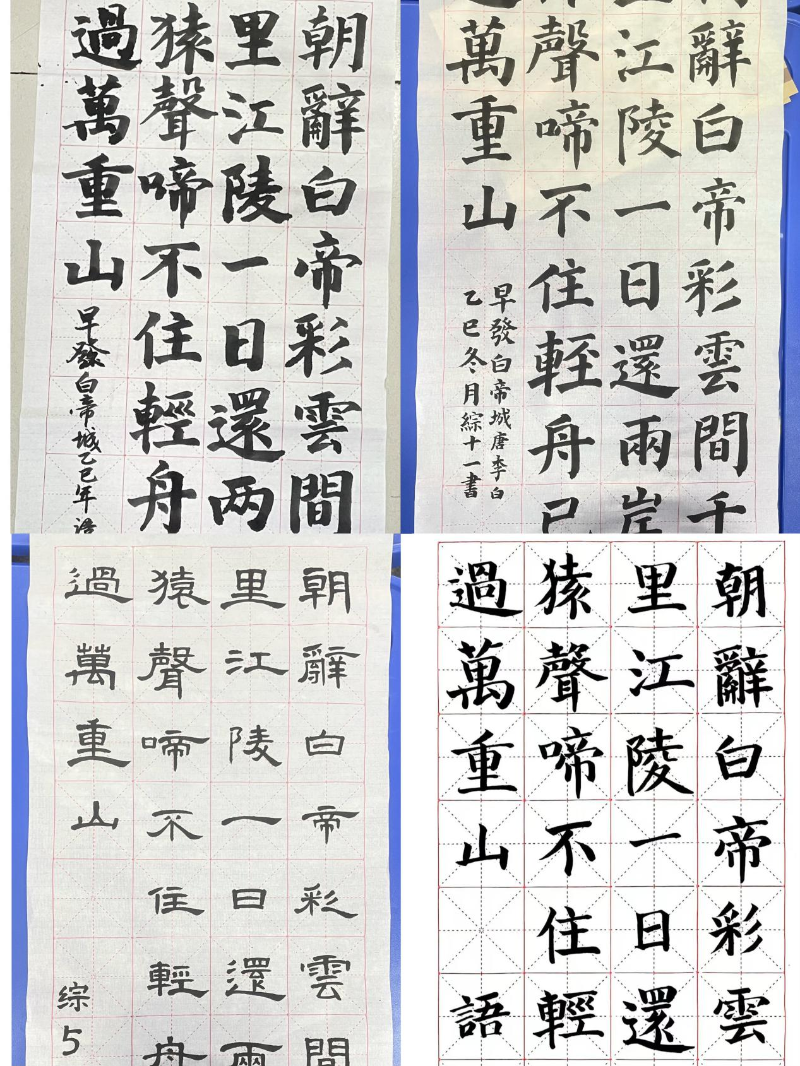 朝辭白帝彩雲間
里江陵一日還两
猿聲啼不住輕舟
過萬重山
早發白帝城乙巳年
辭白帝彩雲間千
江陵一日還兩岸
聲啼不住輕舟已
萬重山
早發白帝城唐李白
乙巳冬月綜十一書
朝辭白帝彩雲間
里江陵一日還兩
猿聲啼不住輕舟
過萬重山
综5
朝辭白帝彩雲
里江陵一日還
猿聲啼不住輕
過萬重山
語